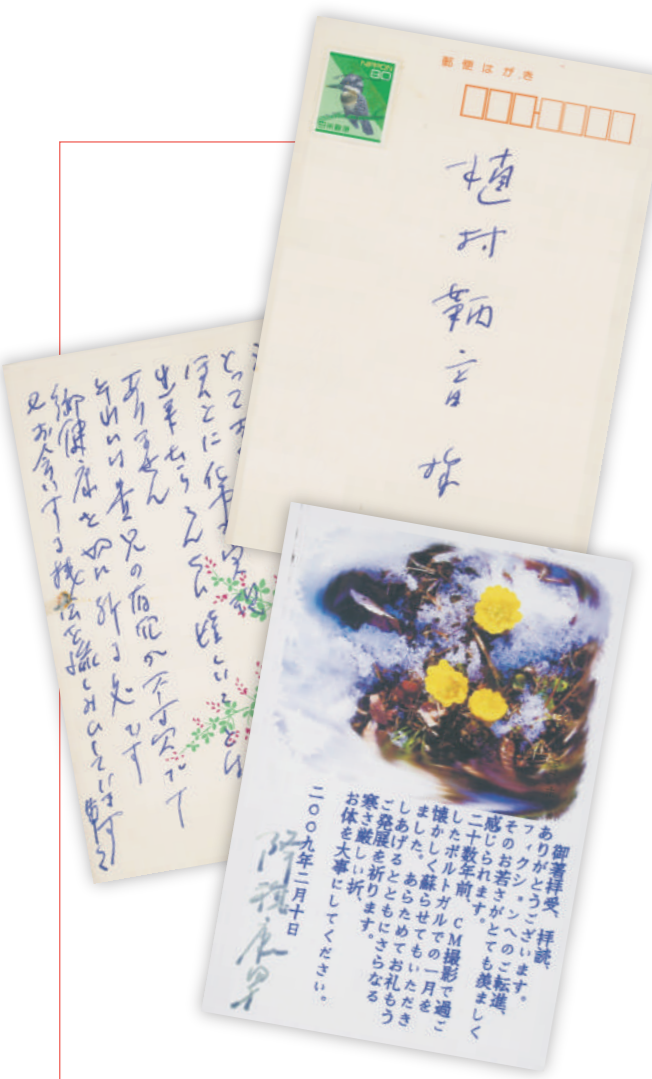 NIPPON
80
日本郵便
郵便はがき
植村鞆音様
とって
ほんとに仕事
出来たらこんな嬉しいことは
ありません
それには貴兄の存在が不可欠
御健康を切に祈る
又お会いする機会を楽しみにしています
御著拝受、拝読、
ありがとうございます。
フィクションへのご転進、
そのお若さがとても羨ましく
感じられます。
二十数年前、CM撮影で過ご
したポルトガルでの一月を
懐かしく蘇らせてもいただき
ました。あらためてお礼もう
しあげるとともにさらなる
ご発展を祈ります。
寒さ厳しい折、
お体を大事にしてください。
二〇〇九年二月十日
降旗康男